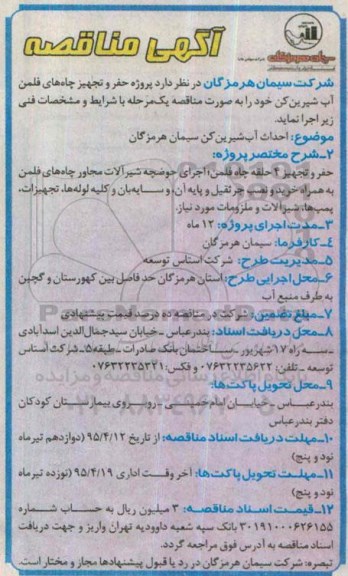 آگهی مناقصه
شرکت سیمان هرمزگان در نظر دارد پروژه حفر و تجهیز چاه‌های فلمن
آب شیرین‌کن خود را به صورت مناقصه یک‌مرحله با شرایط و مشخصات فنی
زیر اجرا نماید.
موضوع: احداث آب‌شیرین‌کن سیمان هرمزگان
۲ــ‌شرح مختصر پروژه:
حفر و تجهیز ۴ حلقه چاه فلمن، اجرای حوضچه شیرآلات مجاور چاه‌های فلمن
به همراه خرید و نصب جرثقیل و پایه آن، و سایه‌بان و کلیه لوله‌ها، تجهیزات،
پمپ‌ها، شیرآلات و ملزومات مورد نیاز.
۳ــ‌مدت اجرای پروژه: ۱۲ ماه
۴ــ‌کارفرما: سیمان هرمزگان
۵ــ‌مدیریت طرح: شرکت استاس توسعه
۶ــ‌محل اجرایی طرح: استان هرمزگان حد فاصل بین کهورستان و گچین
به طرف منبع آب
۷ــ‌مبلغ تضمین: شرکت در مناقصه ده درصد قیمت پیشنهادی
۸ــ‌محل دریافت اسناد: بندرعباس ــ خیابان سیدجمال‌الدین اسدآبادی
ــ سه راه ۱۷ شهریور ــ ساختمان بانک صادرات ــ طبقه ۵ ــ شرکت استاس
توسعه ــ تلفن: ۰۷۶۳۲۲۳۵۶۲۲ و فکس: ۰۷۶۳۲۲۳۵۳۲۱
۹ــ‌محل تحویل پاکت‌ها:
بندرعباس ــ خیابان امام خمینی ــ روبروی بیمارستان کودکان
دفتر بندرعباس
۱۰ــ‌مهلت دریافت اسناد مناقصه: از تاریخ ۹۵/۴/۱۲ (دوازدهم تیرماه
نود و پنج)
۱۱ــ‌مهلت تحویل پاکت‌ها: آخر وقت اداری ۹۵/۴/۱۹ (نوزده تیرماه
نود و پنج)
۱۲ــ‌قیمت اسناد مناقصه: ۳ میلیون ریال به حساب شماره
۳۰۱۹۱۰۰۰۶۲۶۱۵۵ بانک سپه شعبه داوودیه تهران واریز و جهت دریافت
اسناد مناقصه به آدرس فوق مراجعه گردد.
تبصره: شرکت سیمان هرمزگان در رد یا قبول پیشنهادها مجاز و مختار است.